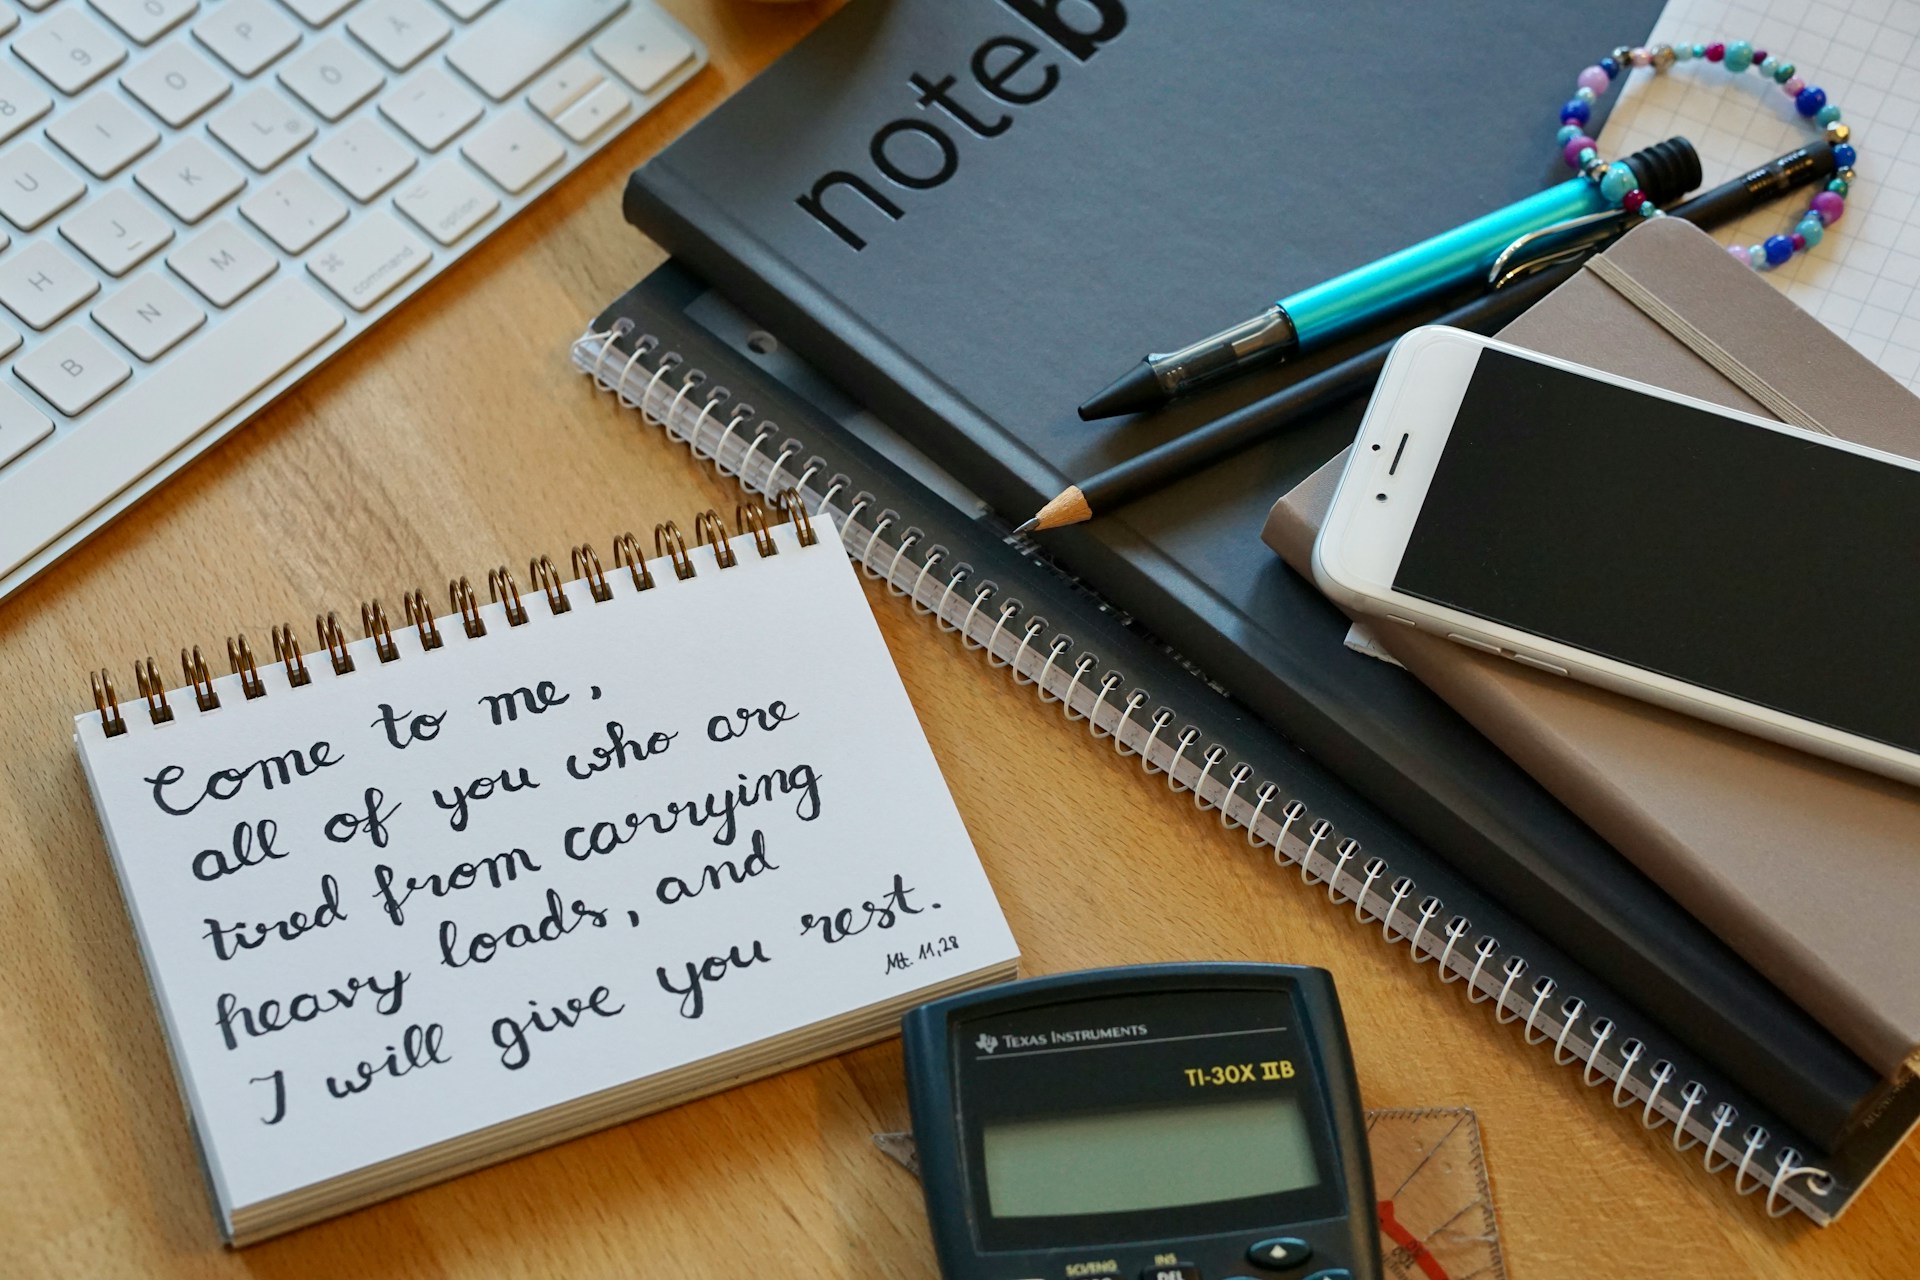 noteb
Come to me,
all of you who are
tired from carrying
heavy loads, and
I will give you rest.
Mt. 11,28
TEXAS INSTRUMENTS
TI-30X IIB
SCI/ENG
INS
DEL
9
P
Å
8
I
O
L @
Ö
U
J
K
H
N
M
B
⌘
command
option